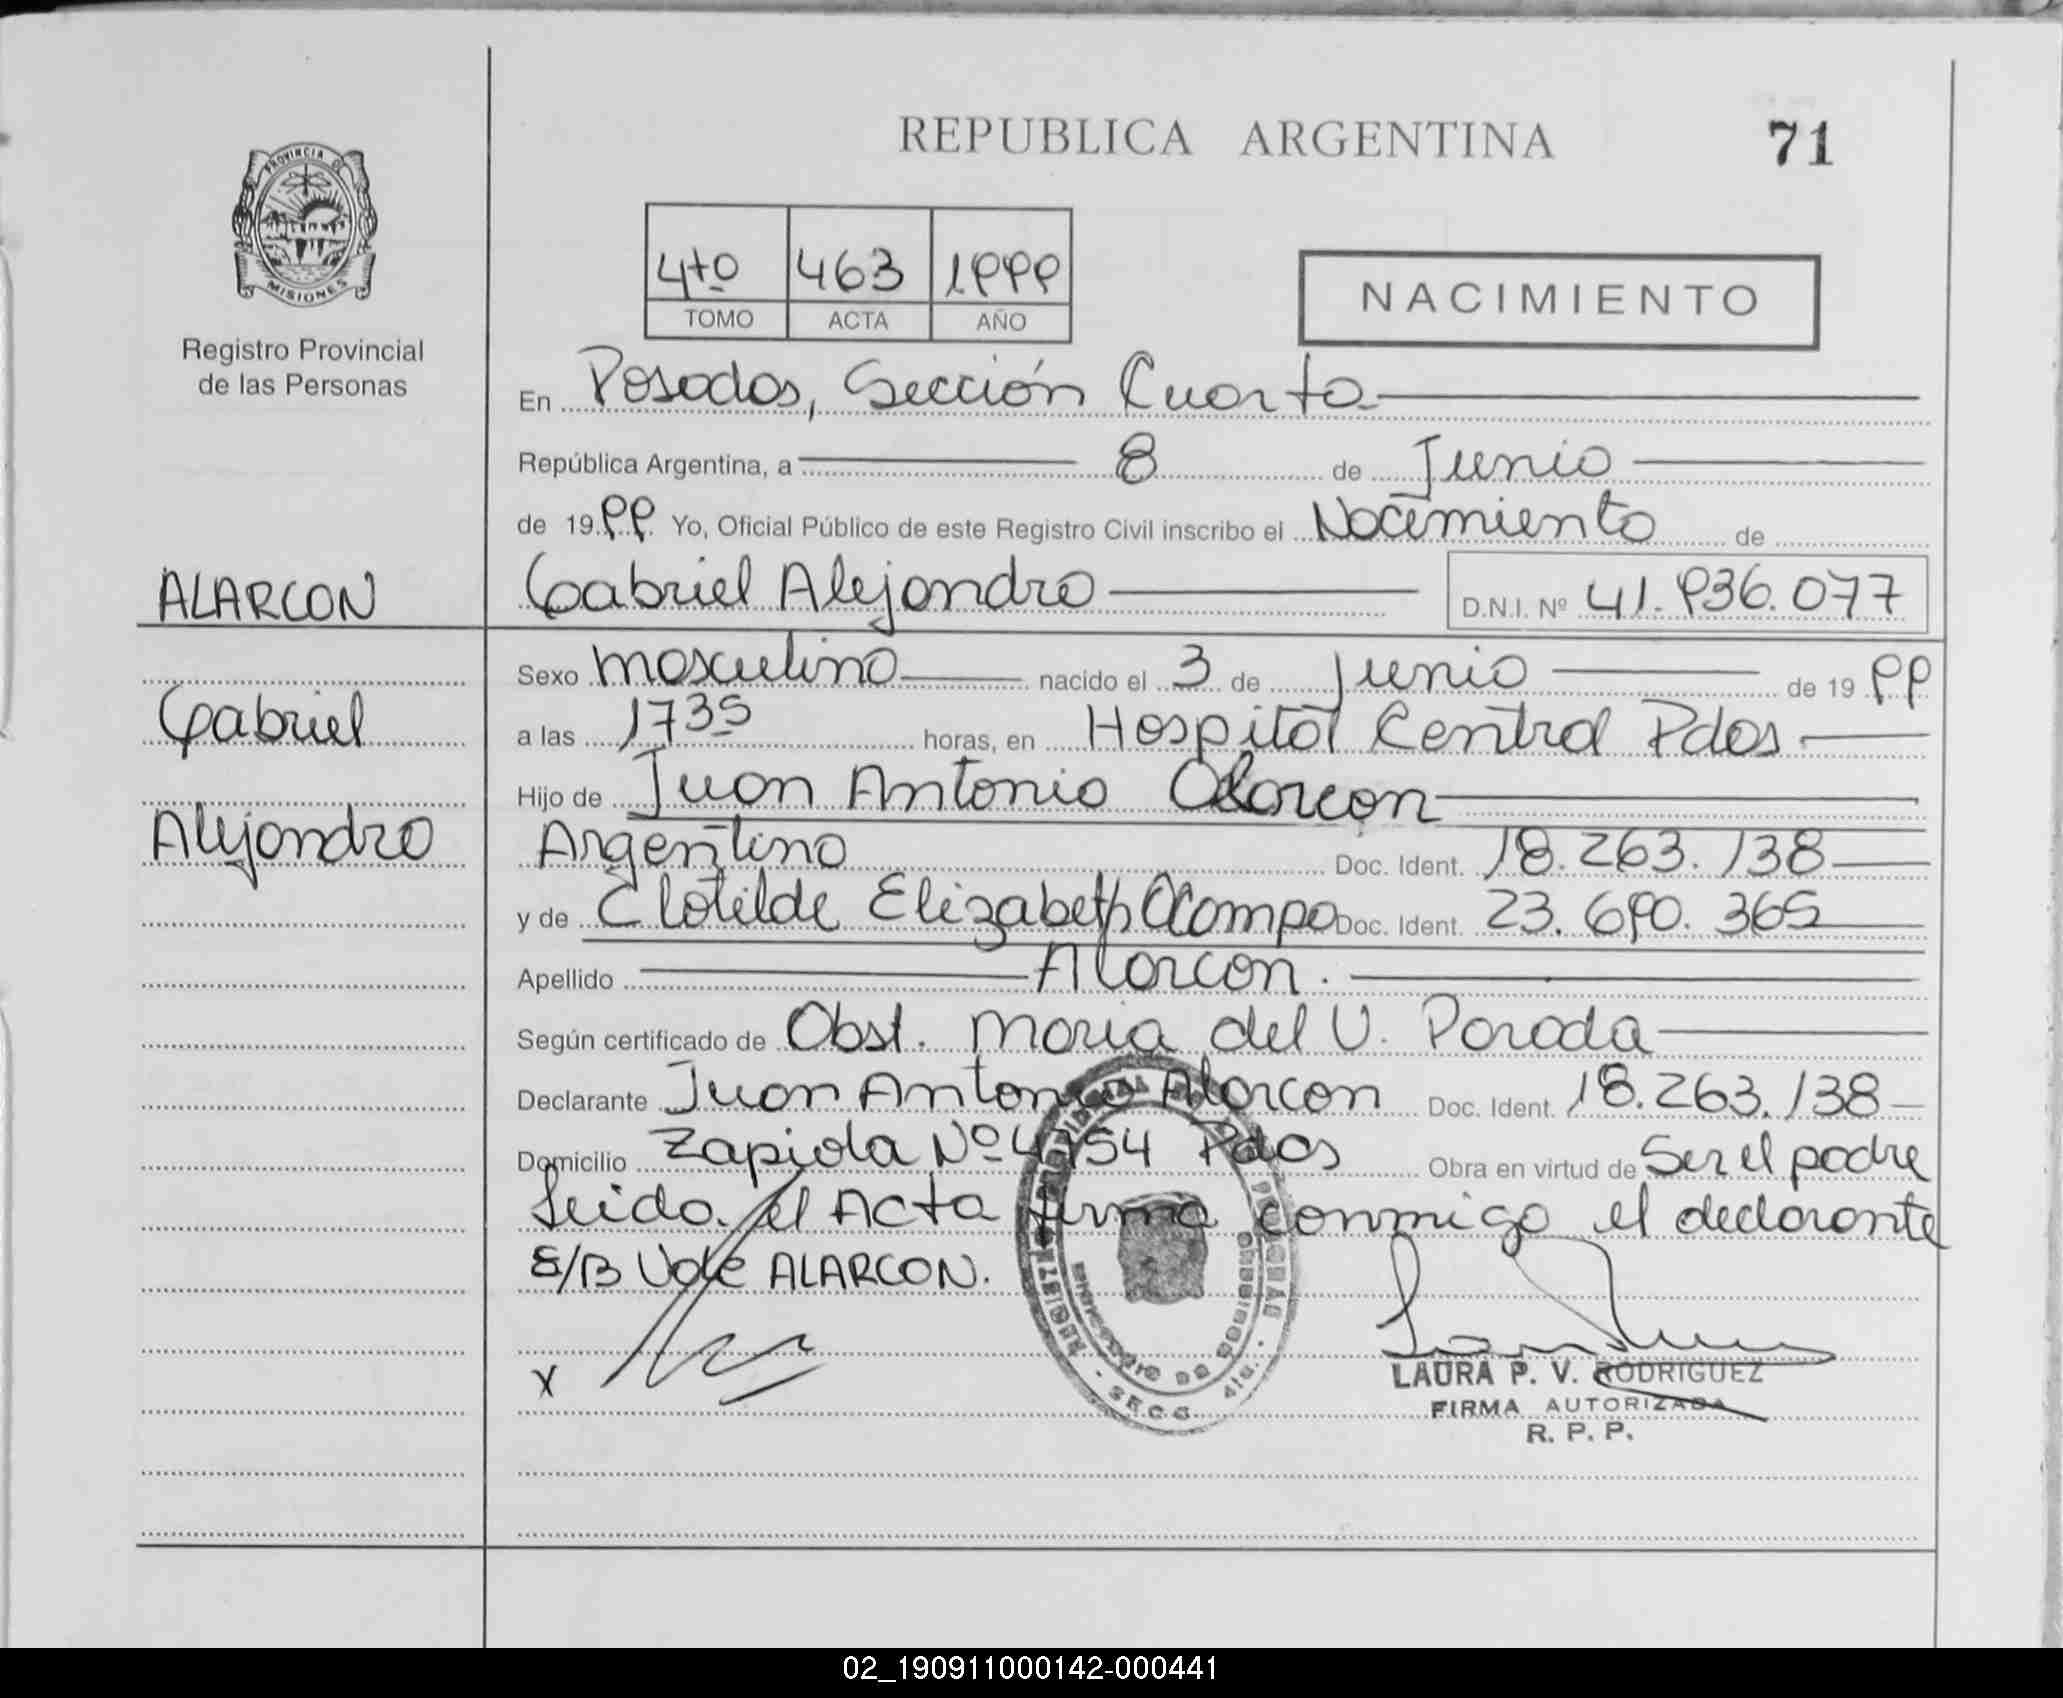 REPUBLICA ARGENTINA 71
PROVINCIA DE
MISIONES
Registro Provincial
de las Personas
4to 463 1999
TOMO ACTA AÑO
NACIMIENTO
En Posadas, Sección Cuarta
República Argentina, a 8 de Junio
de 1999 Yo, Oficial Público de este Registro Civil inscribo el Nacimiento de
ALARCON Gabriel Alejandro D.N.I. Nº 41.936.077
Sexo masculino nacido el 3 de Junio de 1999
Gabriel
a las 1735 horas, en Hospital Central Pdas
Hijo de Juan Antonio Alarcon
Alejandro
Argentino Doc. Ident. 18.263.138
y de Clotilde Elizabeth Ocampo Doc. Ident. 23.690.365
Apellido Alarcon.
Según certificado de Obst. Maria del V. Parada
Declarante Juan Antonio Alarcon Doc. Ident. 18.263.138
Domicilio Zapiola Nº Pdas Obra en virtud de Ser el padre
Leido el Acta firma conmigo el declarante
E/B Vale ALARCON.
X
LAURA P. V. RODRIGUEZ
FIRMA AUTORIZADA
R. P. P.
02_190911000142-000441